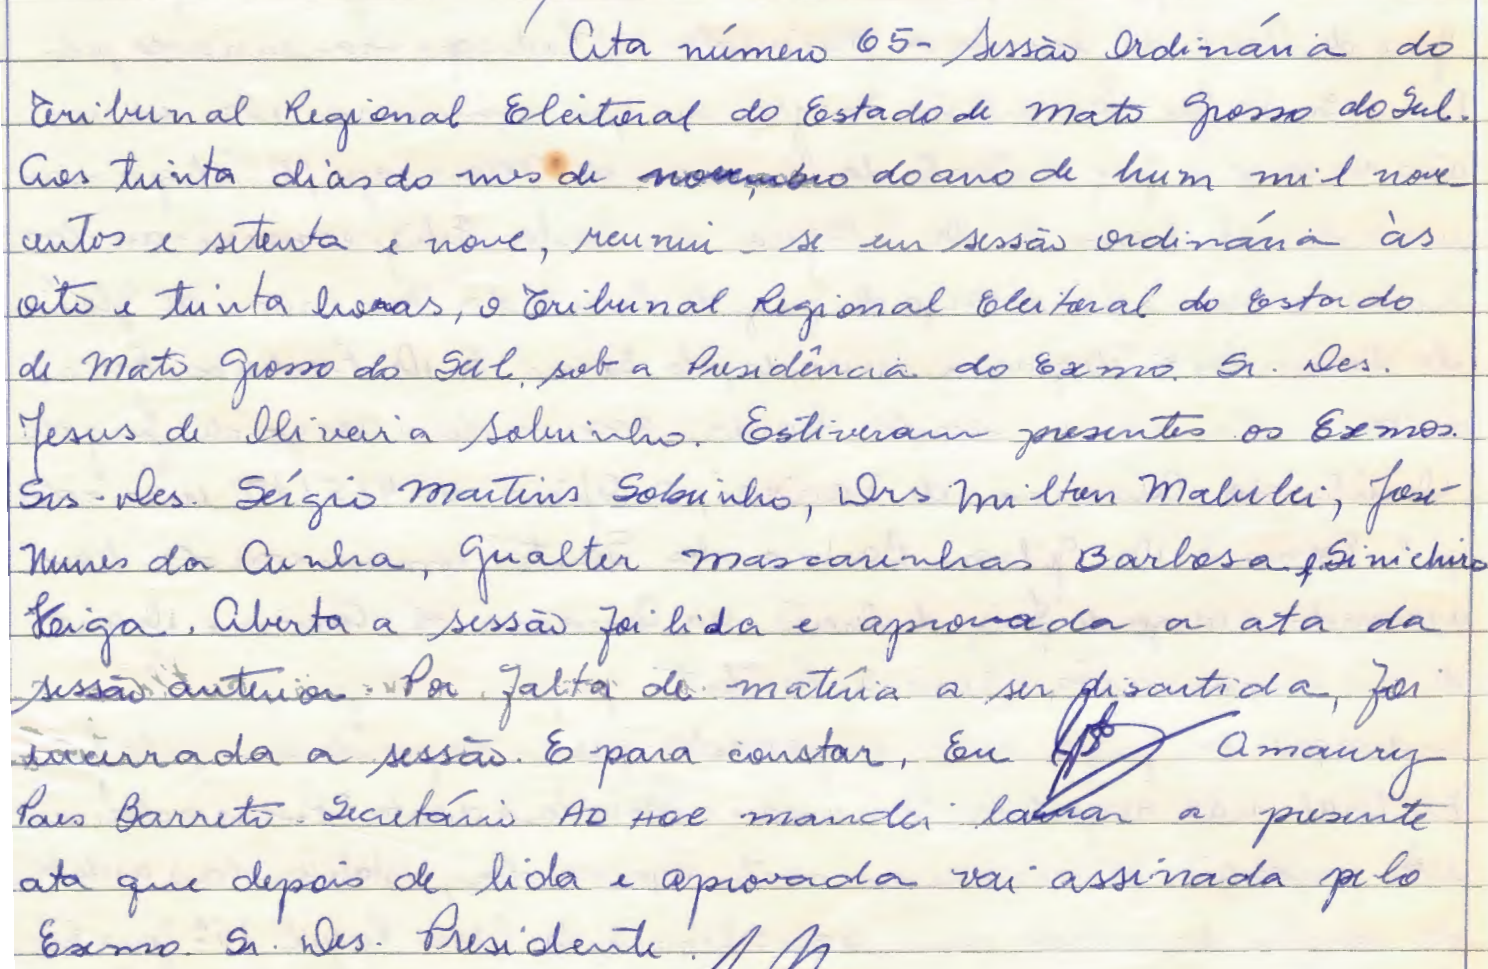 Ata número 65- Sessão Ordinária do
Tribunal Regional Eleitoral do Estado de Mato Grosso do Sul.
Aos trinta dias do mes de novembro do ano de hum mil nove-
centos e setenta e nove, reuniu-se em sessão ordinária às
oito e trinta horas, o Tribunal Regional Eleitoral do Estado
de Mato Grosso do Sul, sob a Presidência do Exmo. Sr. Des.
Jesus de Oliveira Sobrinho. Estiveram presentes os Exmos.
Srs. Des. Sérgio Martins Sobrinho, Drs Milton Malulei, José
Nunes da Cunha, Gualter Mascarinhas Barbosa e Sinichiro
Keiga. Aberta a sessão foi lida e aprovada a ata da
sessão anterior. Por falta de matéria a ser discutida, foi
encerrada a sessão. E para constar, Eu Amaury
Paes Barreto Secretário AD HOC mandei lavrar a presente
ata que depois de lida e aprovada vai assinada pelo
Exmo. Sr. Des. Presidente.